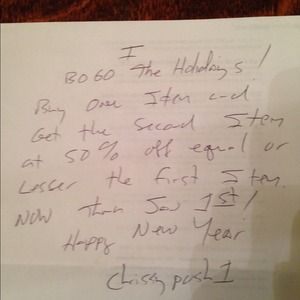 I
BOGO The Holidays!
Buy One Item and
Get the Second Item
at 50% off equal or
Lesser the first Item.
NOW Thru Jan 1st!
Happy New Year
Chrissypush1